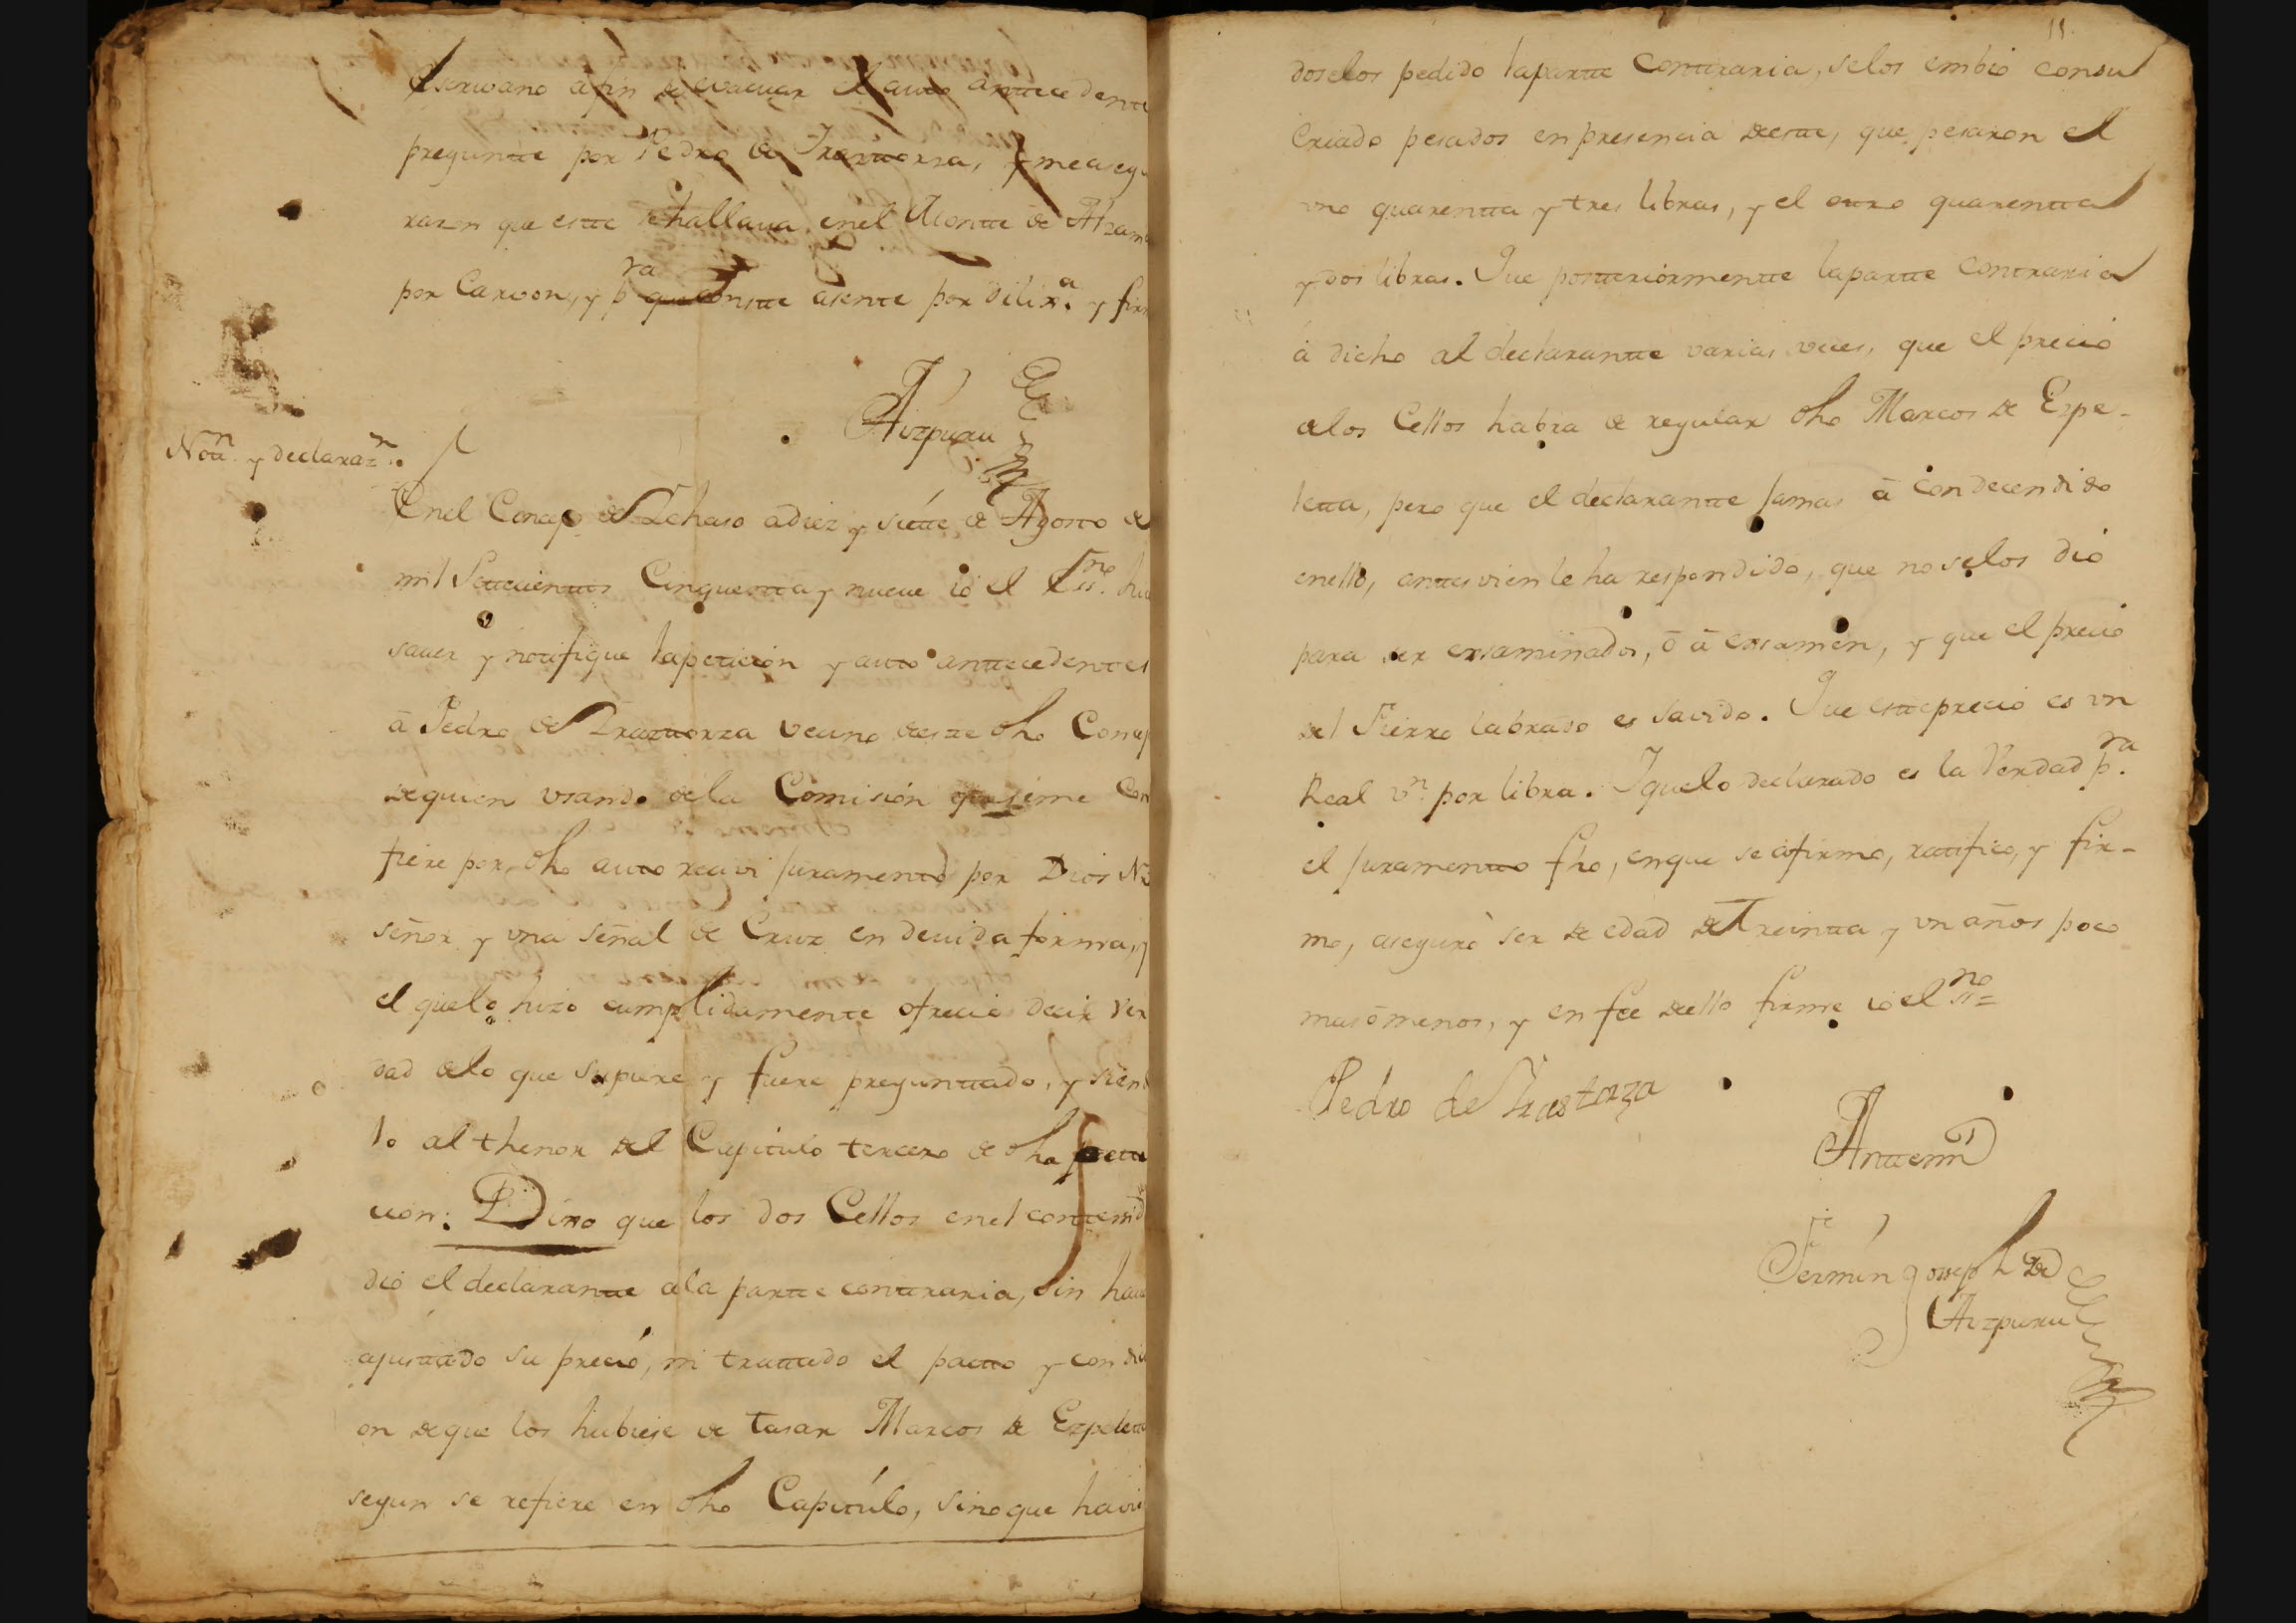 Escrivano afin de evacuar el auto anttecedente
preguntte por Pedro de Irastorza, y me asegu
raron que estte se hallava enel Montte de Alzan
por Carvon, y pra que constte asente por dilixa. y fir
Aizpuru
Nottn. y declarazn.
Enel Concejo de Lehaso a diez y siette de Agosto de
mil Settecienttos Cinquentta y nueve io el Essno. hice
saver y notifique la peticion y auto anttecedentes
à Pedro de Irastorza vecino deste dho Concej
de quien usando dela Comision que seme Con
fiere por dho auto recivi juramento por Dios Nro
señor y una señal de Cruz en devida forma, y
el quelo hizo cumplidamente ofrecio decir ver
dad delo que supiere y fuere preguntado, y sien
lo al thenor del Capitulo tercero de dha petti
cion: Dixo que los dos Cellos enel conttenid
dió el declarantte ala partte conttraria, sin hav
ajusttado su precio, ni trattado el pactto y condici
on de que los hubiese de tasar Marcos de Ezpelett
segun se refiere en dho Capitulo, sino que havie
11.
doselos pedido lapartte Conttraria, selos embió consu
Criado pesados en presencia deestte, que pesaron el
uno quarentta y tres libras, y el ottro quarentta
y dos libras. Que postteriormentte lapartte Contraria
à dicho al declarantte varias veces, que el precio
delos Cellos habra de regular dho Marcos de Ezpe-
letta, pero que el declarantte jamas à condecendido
enello, anttes vien le ha respondido, que no selos dió
para ser exsaminados, ō à exsamen, y que el precio
del Fierro labrado es savido. Que estte precio es un
Real vn. por libra. Y quelo declarado es la Verdad pra.
el juramentto fho, enque se afirmo, ratifico, y fir-
mo, aseguró ser de edad de Treintta y un años poco
mas ō menos, y en fee de ello firme io el ssno=
Pedro de Irastorza
Anttemi
Fermin Joseph de
Aizpuru